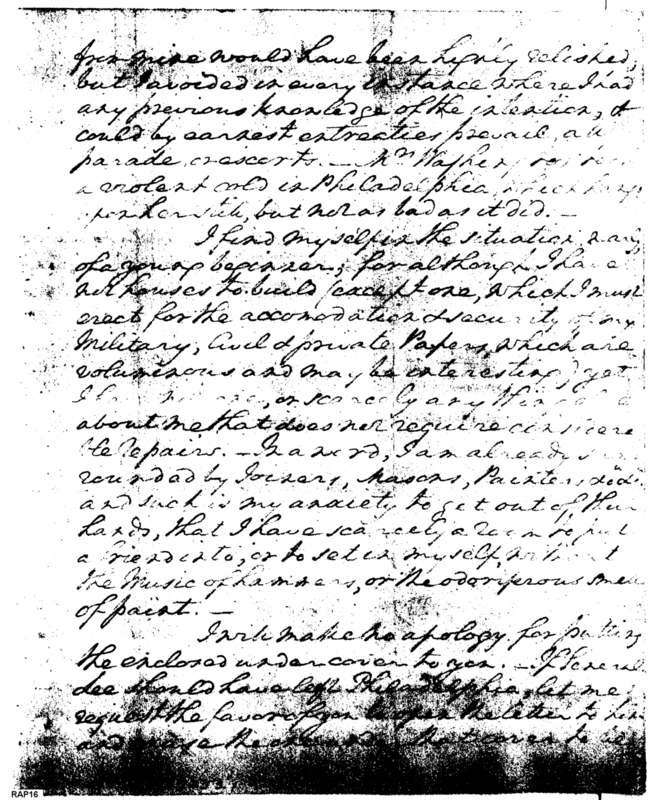 mine would have been highly relished,
but I avoided in every instance where I had
any previous knowledge of the intention, &
could by earnest entreaties prevail, all
parade, or escorts. — Mrs Washington
a violent cold in Philadelphia, which hangs
upon her still, but not as bad as it did. —
I find myself in the situation, nearly
of a young beginner; for although I have
not houses to build (except one, which I must
erect for the accomodation & security of my
Military, Civil & private Papers, which are
voluminous and may be interesting) yet
I have , or scarcely any thing
about me that does not require considera
ble repairs. — In a word, I am already sur
rounded by Joiners, Masons, Painters &c &c
and such is my anxiety to get out of their
hands, that I have scarcely a room to put
a friend into, or to set in myself, without
the Music of hammers, or the odoriferous smell
of paint. —
I will make no apology for putting
the enclosed under cover to you. — If General
Lee should have left Philadelphia, let me
request the favor of you to open the letter to him
and the under that cover to be
RAP16